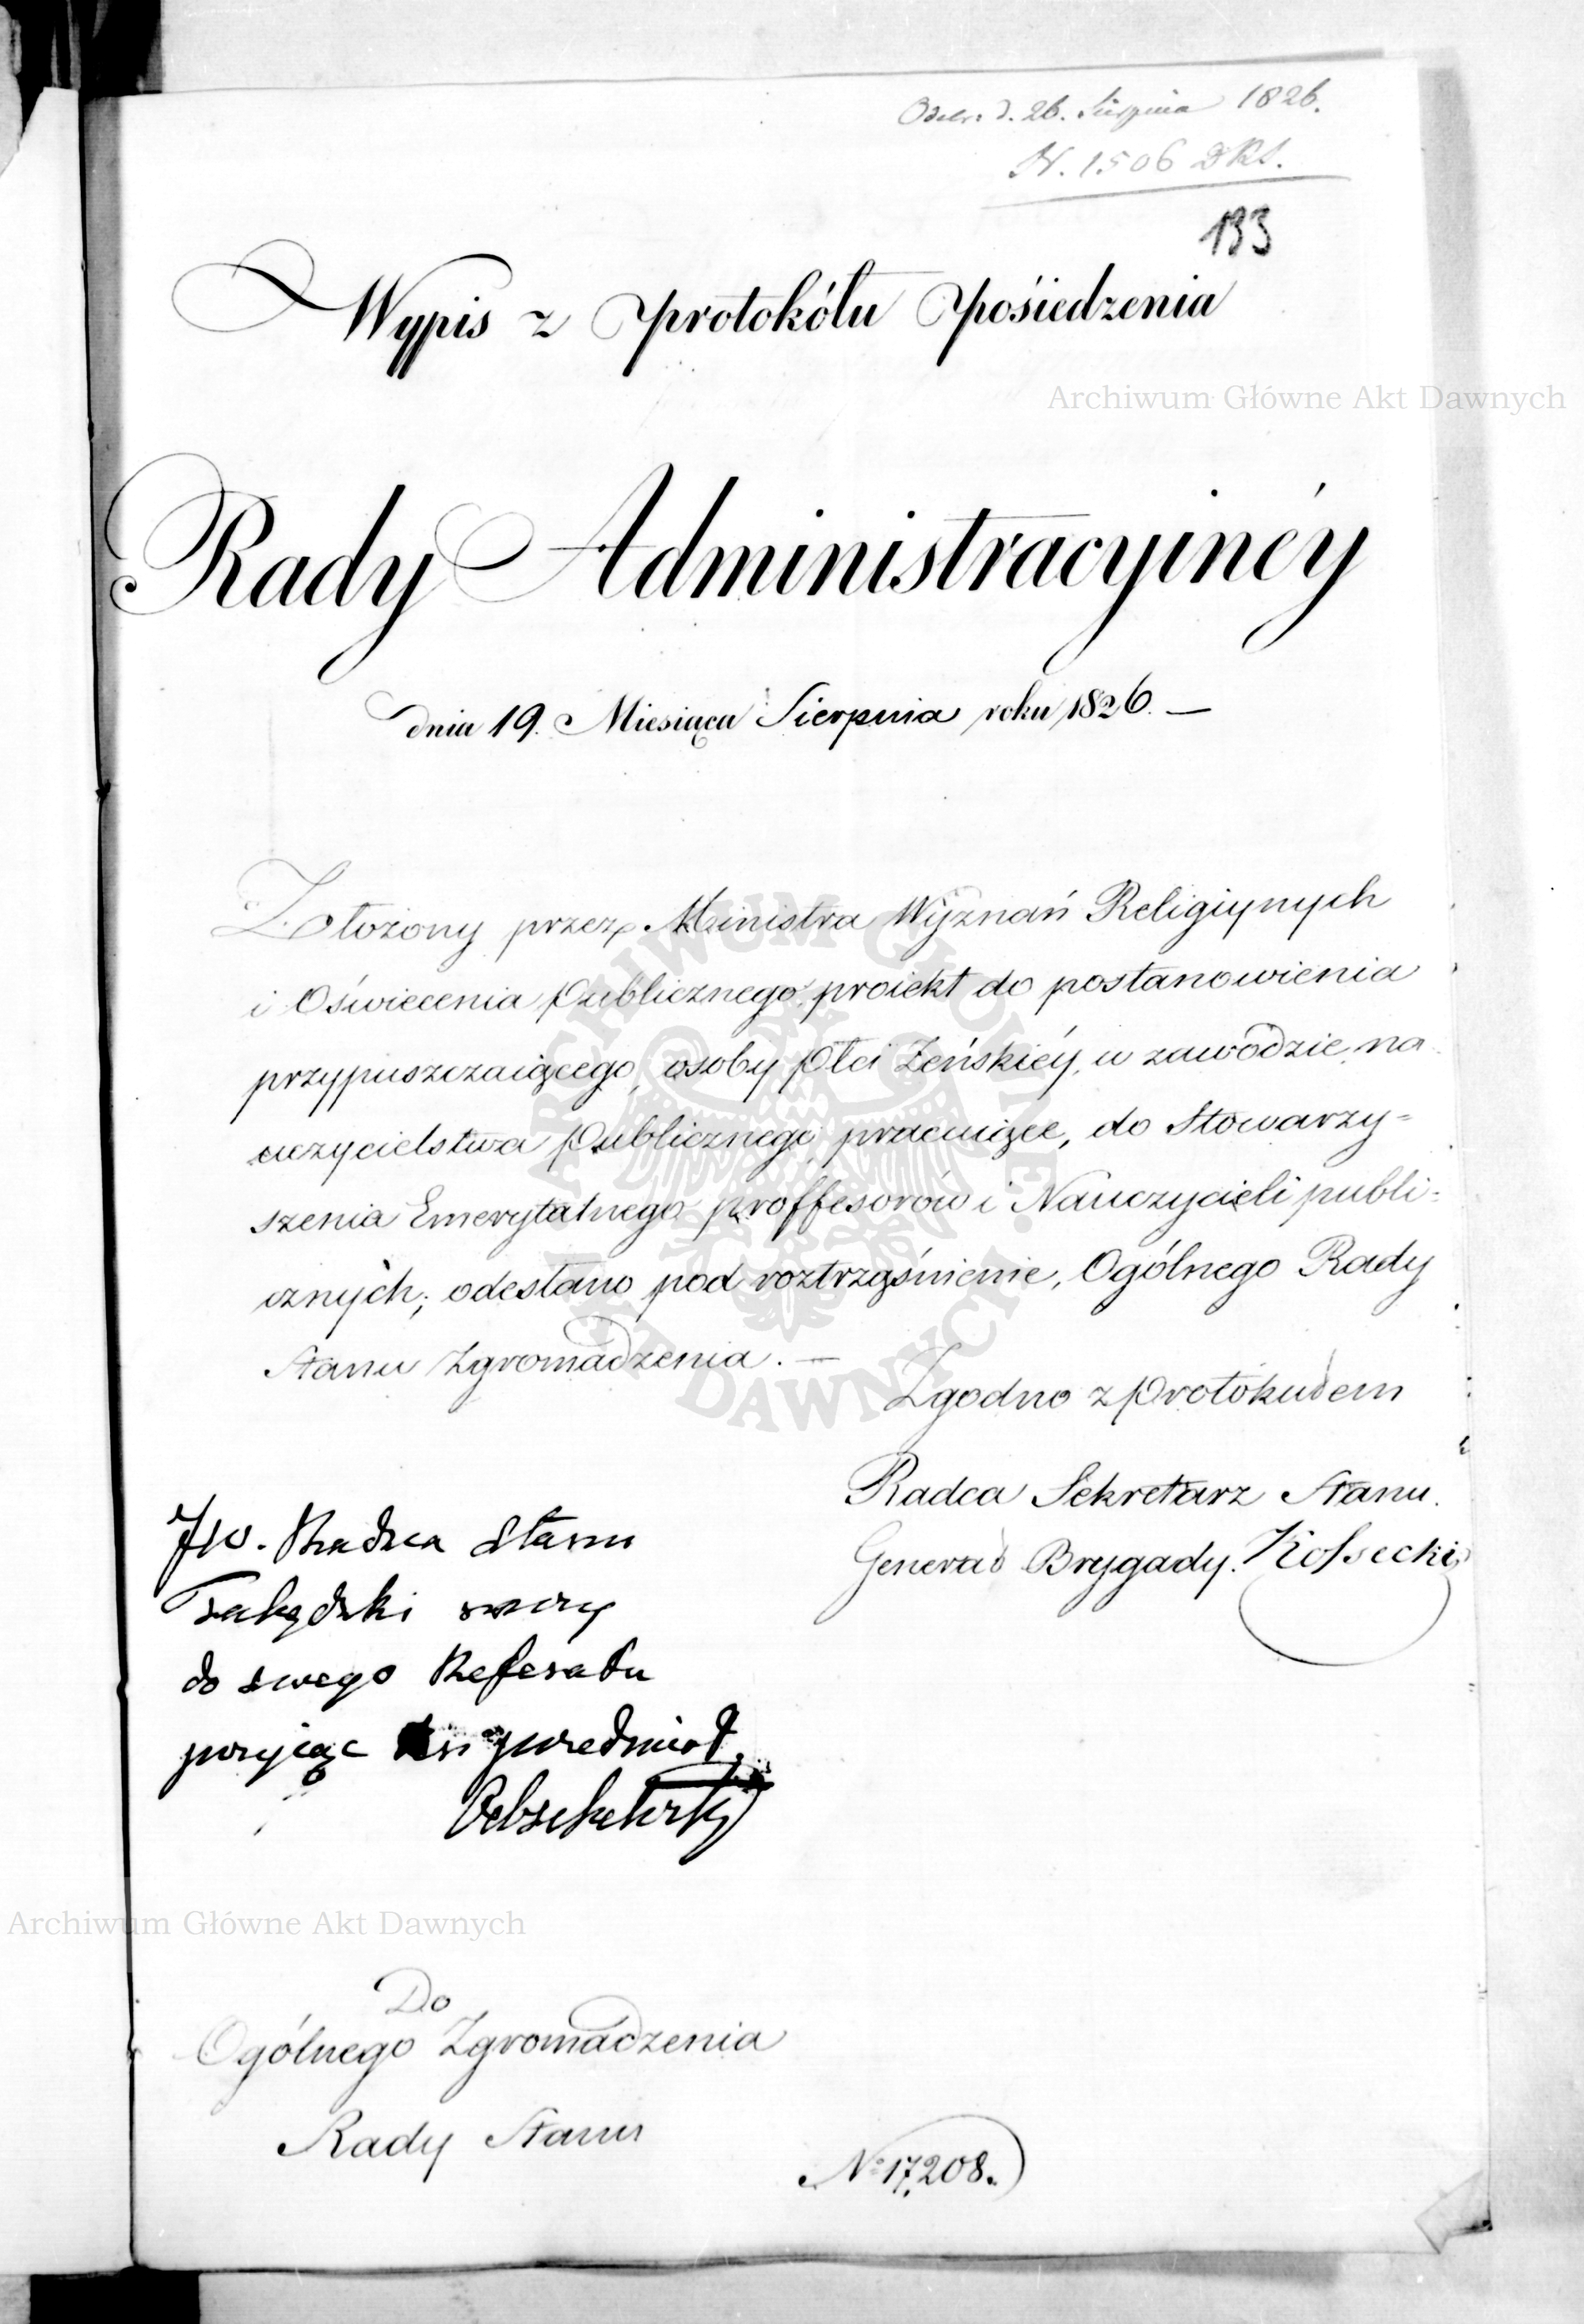 Odebr: d. 26. Sierpnia 1826.
N. 1506 DRS.
193
Wypis z protokółu pośiedzenia
Archiwum Główne Akt Dawnych
Rady Administracyinéy
dnia 19. Miesiąca Sierpnia roku 1826. —
Złożony przez Ministra Wyznań Religiynych
i Oświecenia Publicznego proiekt do postanowienia
przypuszczaiącego, osoby płci Żeńskiéy, w zawodzie na
uczycielstwa Publicznego pracuiące, do Stowarzy=
szenia Emerytalnego proffesorów i Nauczycieli publi=
cznych; odesłano pod roztrząśnienie, Ogólnego Rady
Stanu Zgromadzenia. —
Zgodno z Protokułem
Radca Sekretarz Stanu.
Generał Brygady. Kossecki
JW. Radca Stanu
do swego Referatu
przyjąć ten przedmiot
Archiwum Główne Akt Dawnych
Do
Ogólnego Zgromadzenia
Rady Stanu
No 17,208.
ARCHIWUM GŁÓWNE AKT DAWNYCH